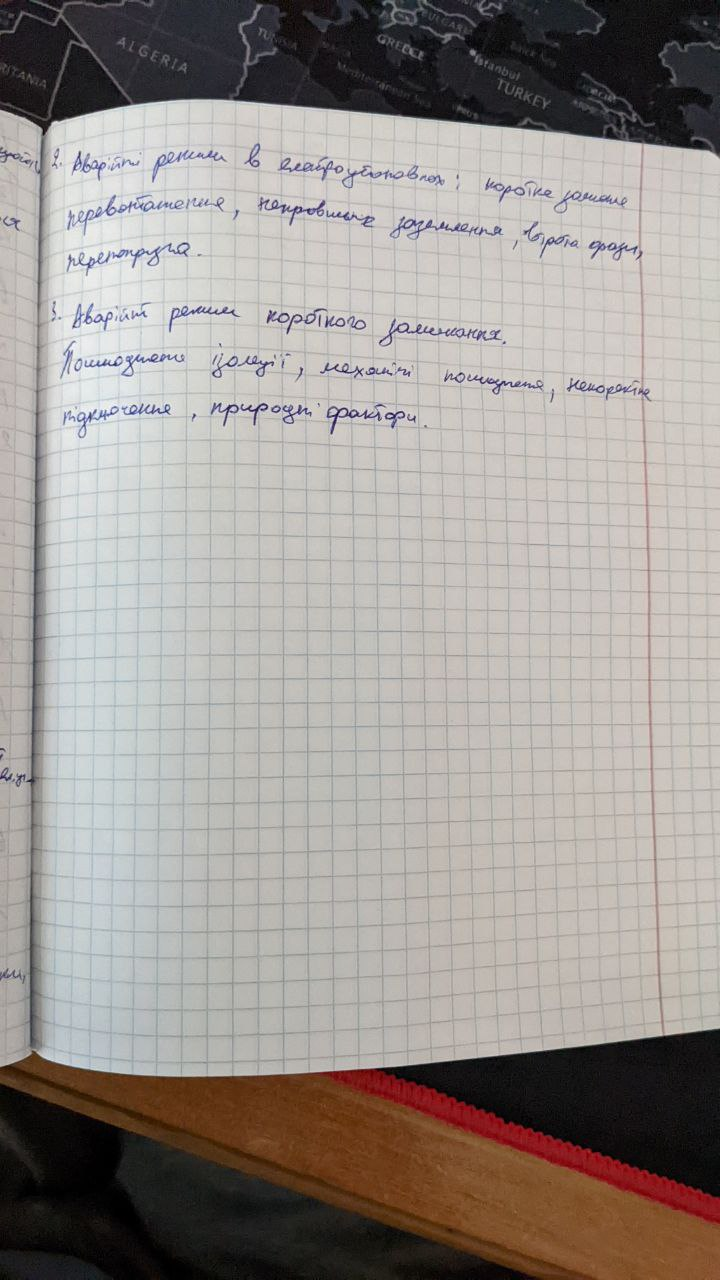 ALGERIA
TUNISIA
GREECE
BULGARIA
Istanbul
TURKEY
Black Sea
Mediterranean Sea
2. Аварійні режими в електроустановках: коротке замкнене
перевонтаження, неправильне заземлення, втрата фази,
перенапруга.
3. Аварійні режим короткого замикання.
Пошкодження ізоляції, механічні пошкодження, некоректне
підключення, природні фактори.